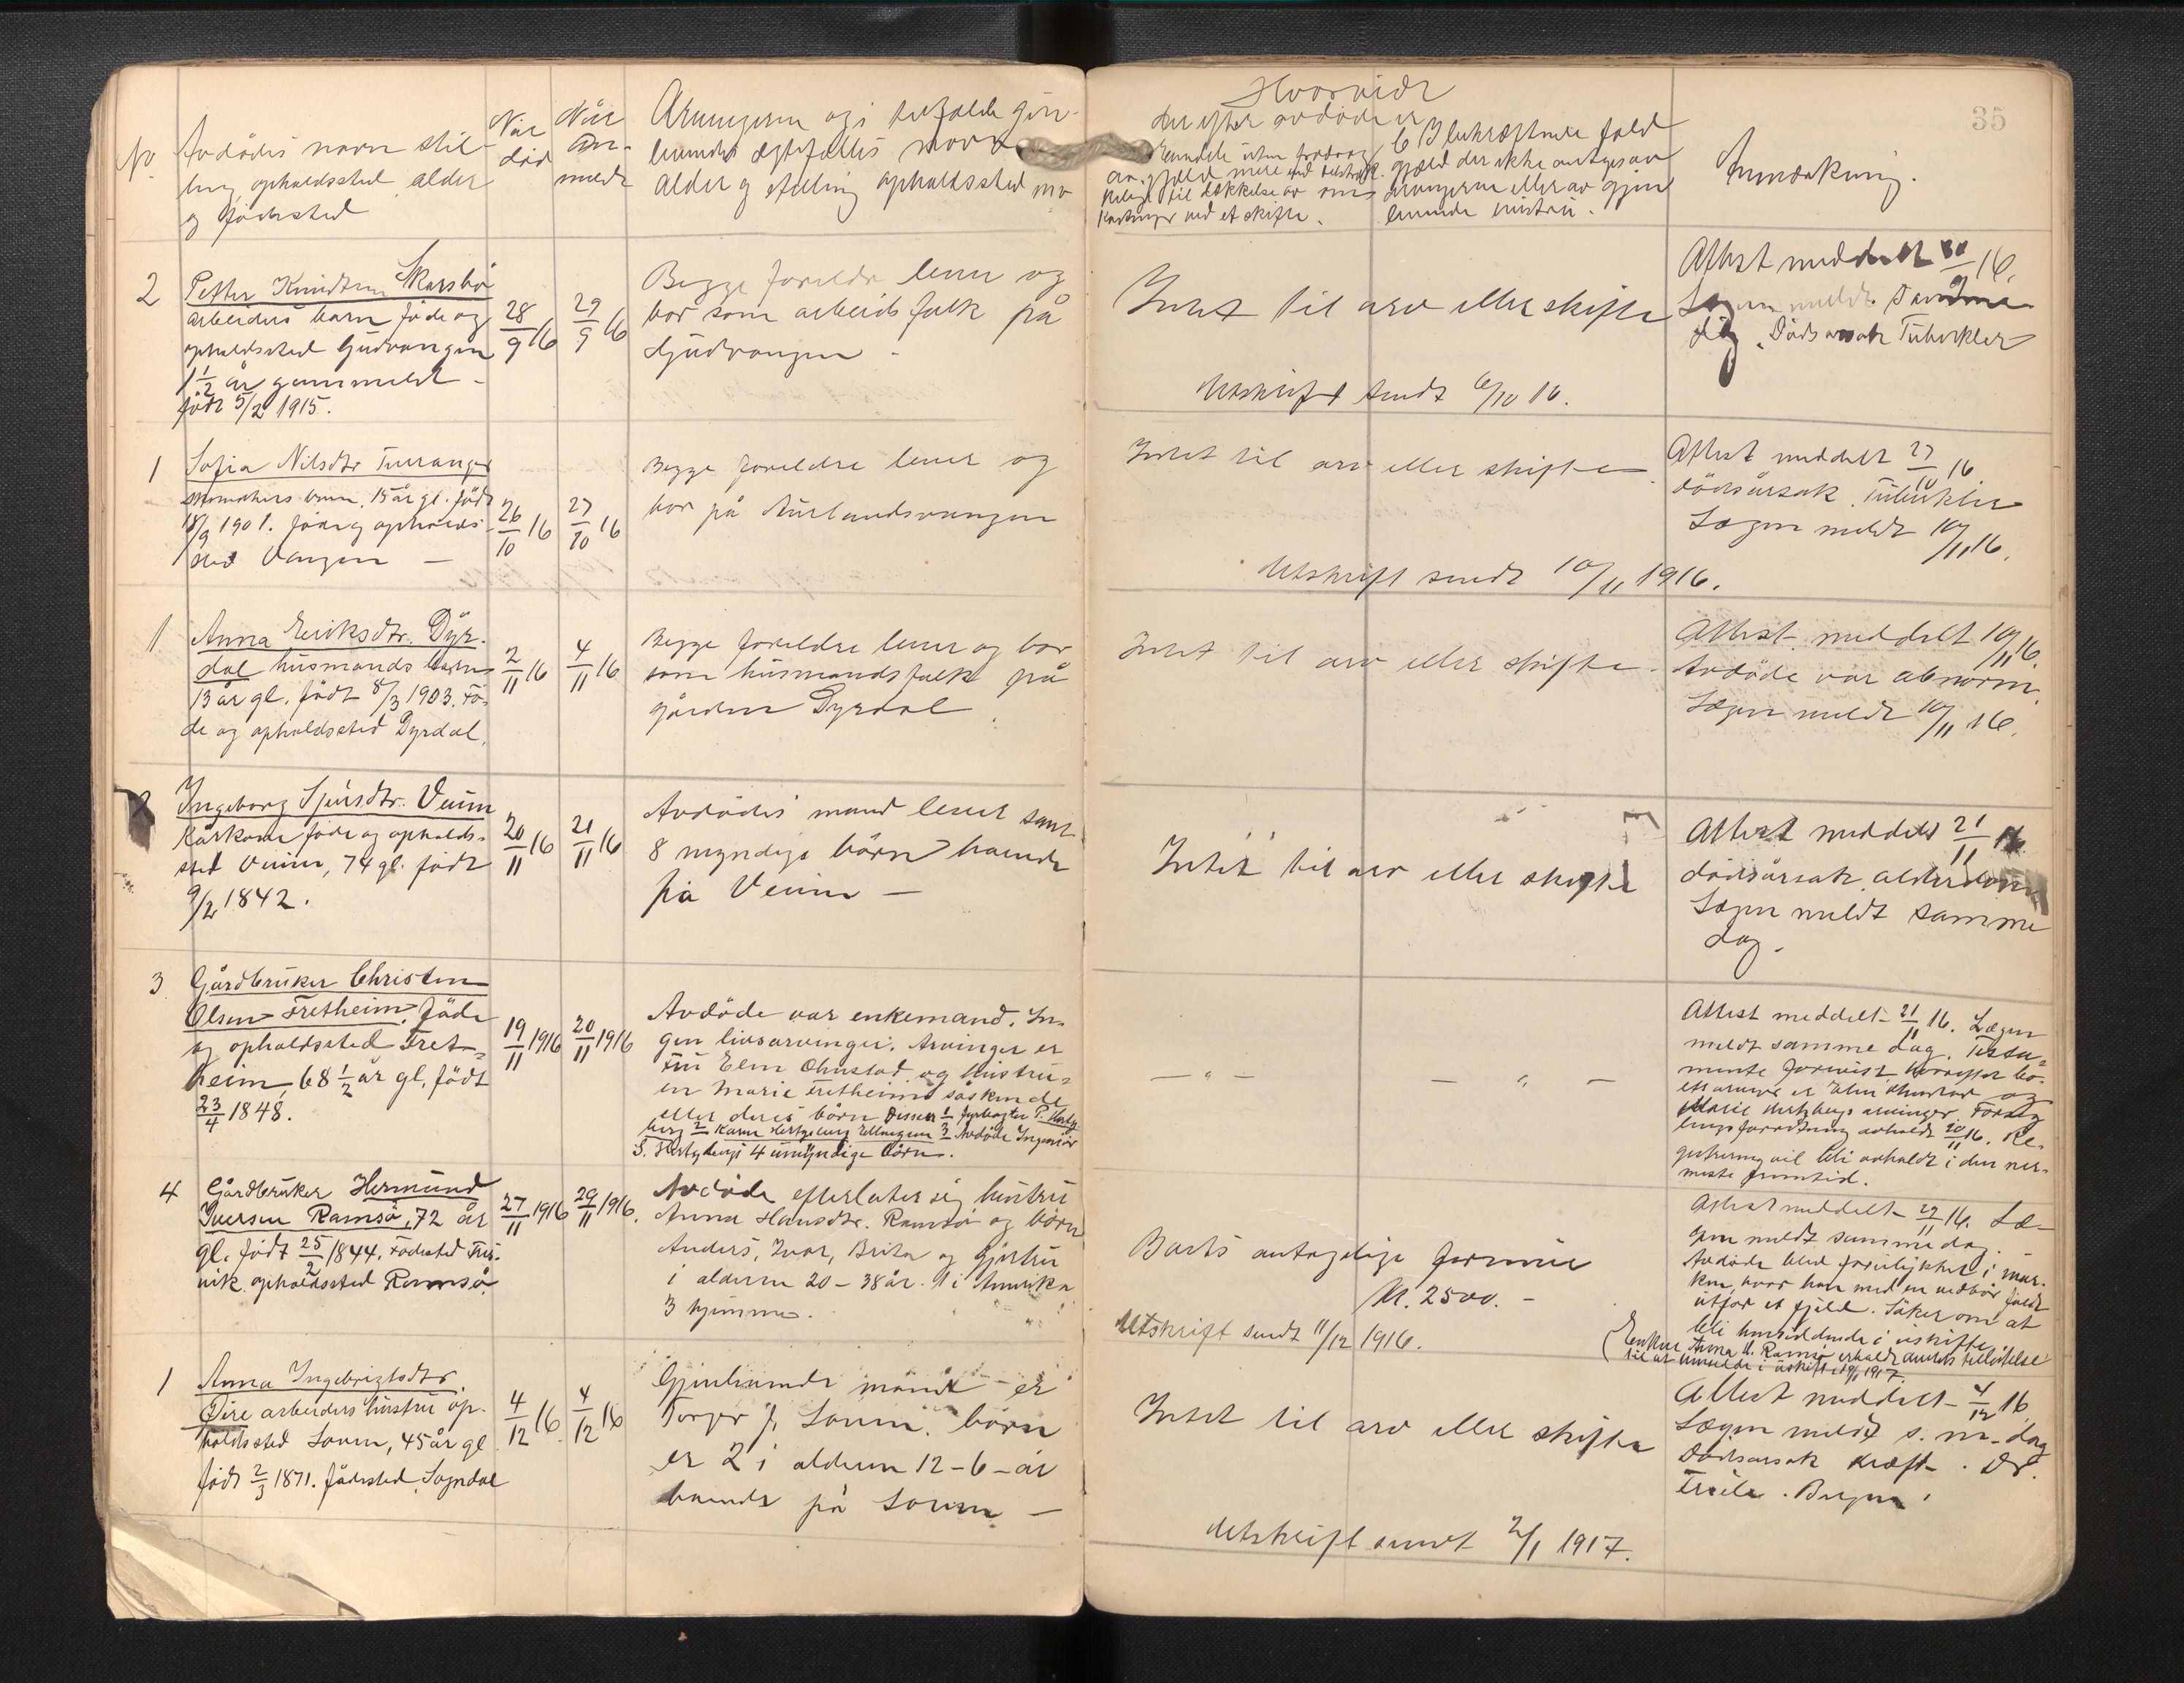 35
No.
Avdødes navn stil-
ling opholdssted, alder
og fødested
Når
død
Når
an-
meldt
Arvingerne og i tilfælde gjen-
levende egtefælles navn
alder og stilling opholdssted
Hvorvidt
der efter avdøde er
til dækkelse av om-
kostninger ved et skifte.
gjæld der ikke antages av
arvingerne eller av gjen
levende hustru.
Anmerkning.
2
Petter Knudtsen Skarsbø
arbeiders barn føde og
opholdssted Gudvangen
1 1/2 år gammelt -
født 5/2 1915.
28/9 16
29/9 16
Begge foreldre lever og
bor som arbeidsfolk på
Gudvangen -
Intet til arv eller skifte
Utskrift sendt 6/10 16.
Attest meddelt 16.
Lægen meldt samme
dag. Dødsårsak Tuberkler
1
Sofia Nilsdtr Turvanger
barn, 15 år gl. født
18/9 1901. føde og opholds-
sted Vangen -
26/10 16
27/10 16
Begge foreldre lever og
bor på Aurlandsvangen
Intet til arv eller skifte
Utskrift sendt 10/11 1916.
Attest meddelt 27/10 16
dødsårsak Tuberkler
Lægen meldt 10/11 16.
1
Anna Eriksdtr. Dyr-
dal husmands barn
13 år gl. født 8/3 1903. Fø-
de og opholdssted Dyrdal.
2/11 16
4/11 16
Begge foreldre lever og bor
som husmandsfolk på
gården Dyrdal.
Intet til arv eller skifte.
Attest meddelt 10/11 16.
Avdøde var abnorm.
Lægen meldt 10/11 16.
Ingeborg Sjursdtr. Veum
Kårkone føde og opholds-
sted Veum, 74 gl. født
9/2 1842.
20/11 16
21/11 16
Avdødes mand lever samt
8 myndige børn boende
på Veum -
Intet til arv eller skifte
Attest meddelt 21/11 16
dødsårsak alderdom
Lægen meldt samme
dag.
3
Gårdbruker Christen
Olsen Fretheim, føde
og opholdssted Fret-
heim, 68 1/2 år gl, født
23/4 1848.
19/11 1916
20/11 1916
Avdøde var enkemand. In-
gen livsarvinger. Arvinger er
Elen Ohnstad og hustru-
en Marie Fretheims søskende
eller deres børn
4 umyndige børn.
— „ —
— „ —
Attest meddelt 21/11 16. Lægen
meldt samme dag. Testa-
mente forevist hvorefter bo-
ets arvinger er Elen Ohnstad og
Marie Hertzbergs arvinger. Forseg-
lingsforretning avholdt 20/11 16. Re-
gistrering vil bli avholdt i den nær-
meste fremtid.
4
Gårdbruker Hermund
Iversen Ramsø, 72 år
gl. født 25/2 1844. Fødested
opholdssted Ramsø.
27/11 1916
29/11 1916.
Avdøde efterlater sig hustru
Anna Hansdtr. Ramsø og børn
Anders, Ivar, Brita og Gjertru
i alderen 20 – 38 år. 1 i Amerika
3 hjemme.
Boets antagelige formue
Kr. 2500. -
Utskrift sendt 11/12 1916.
Attest meddelt 29/11 16. Læ-
gen meldt samme dag.
Avdøde blev forulykket i mar-
ken, hvor han med en vedbør faldt
utfor et fjeld. Søker om at
bli hensiddende i uskifte
(Enken Anna H. Ramsø erholdt amtets tilladelse
1
Anna Ingebrigtsdtr.
Øire arbeiders hustru op-
holdssted Loven, 45 år gl
født 2/3 1871. fødested Sogndal
4/12 16
4/12 16
Gjenlevende mand er
Torger J. Loven. børn
er 2 i alderen 12 – 6 – år
boende på Loven -
Intet til arv eller skifte
Utskrift sendt 2/1 1917.
Attest meddelt 4/12 16
Lægen meldt s. m. dag
Dødsårsak kræft. Dr.